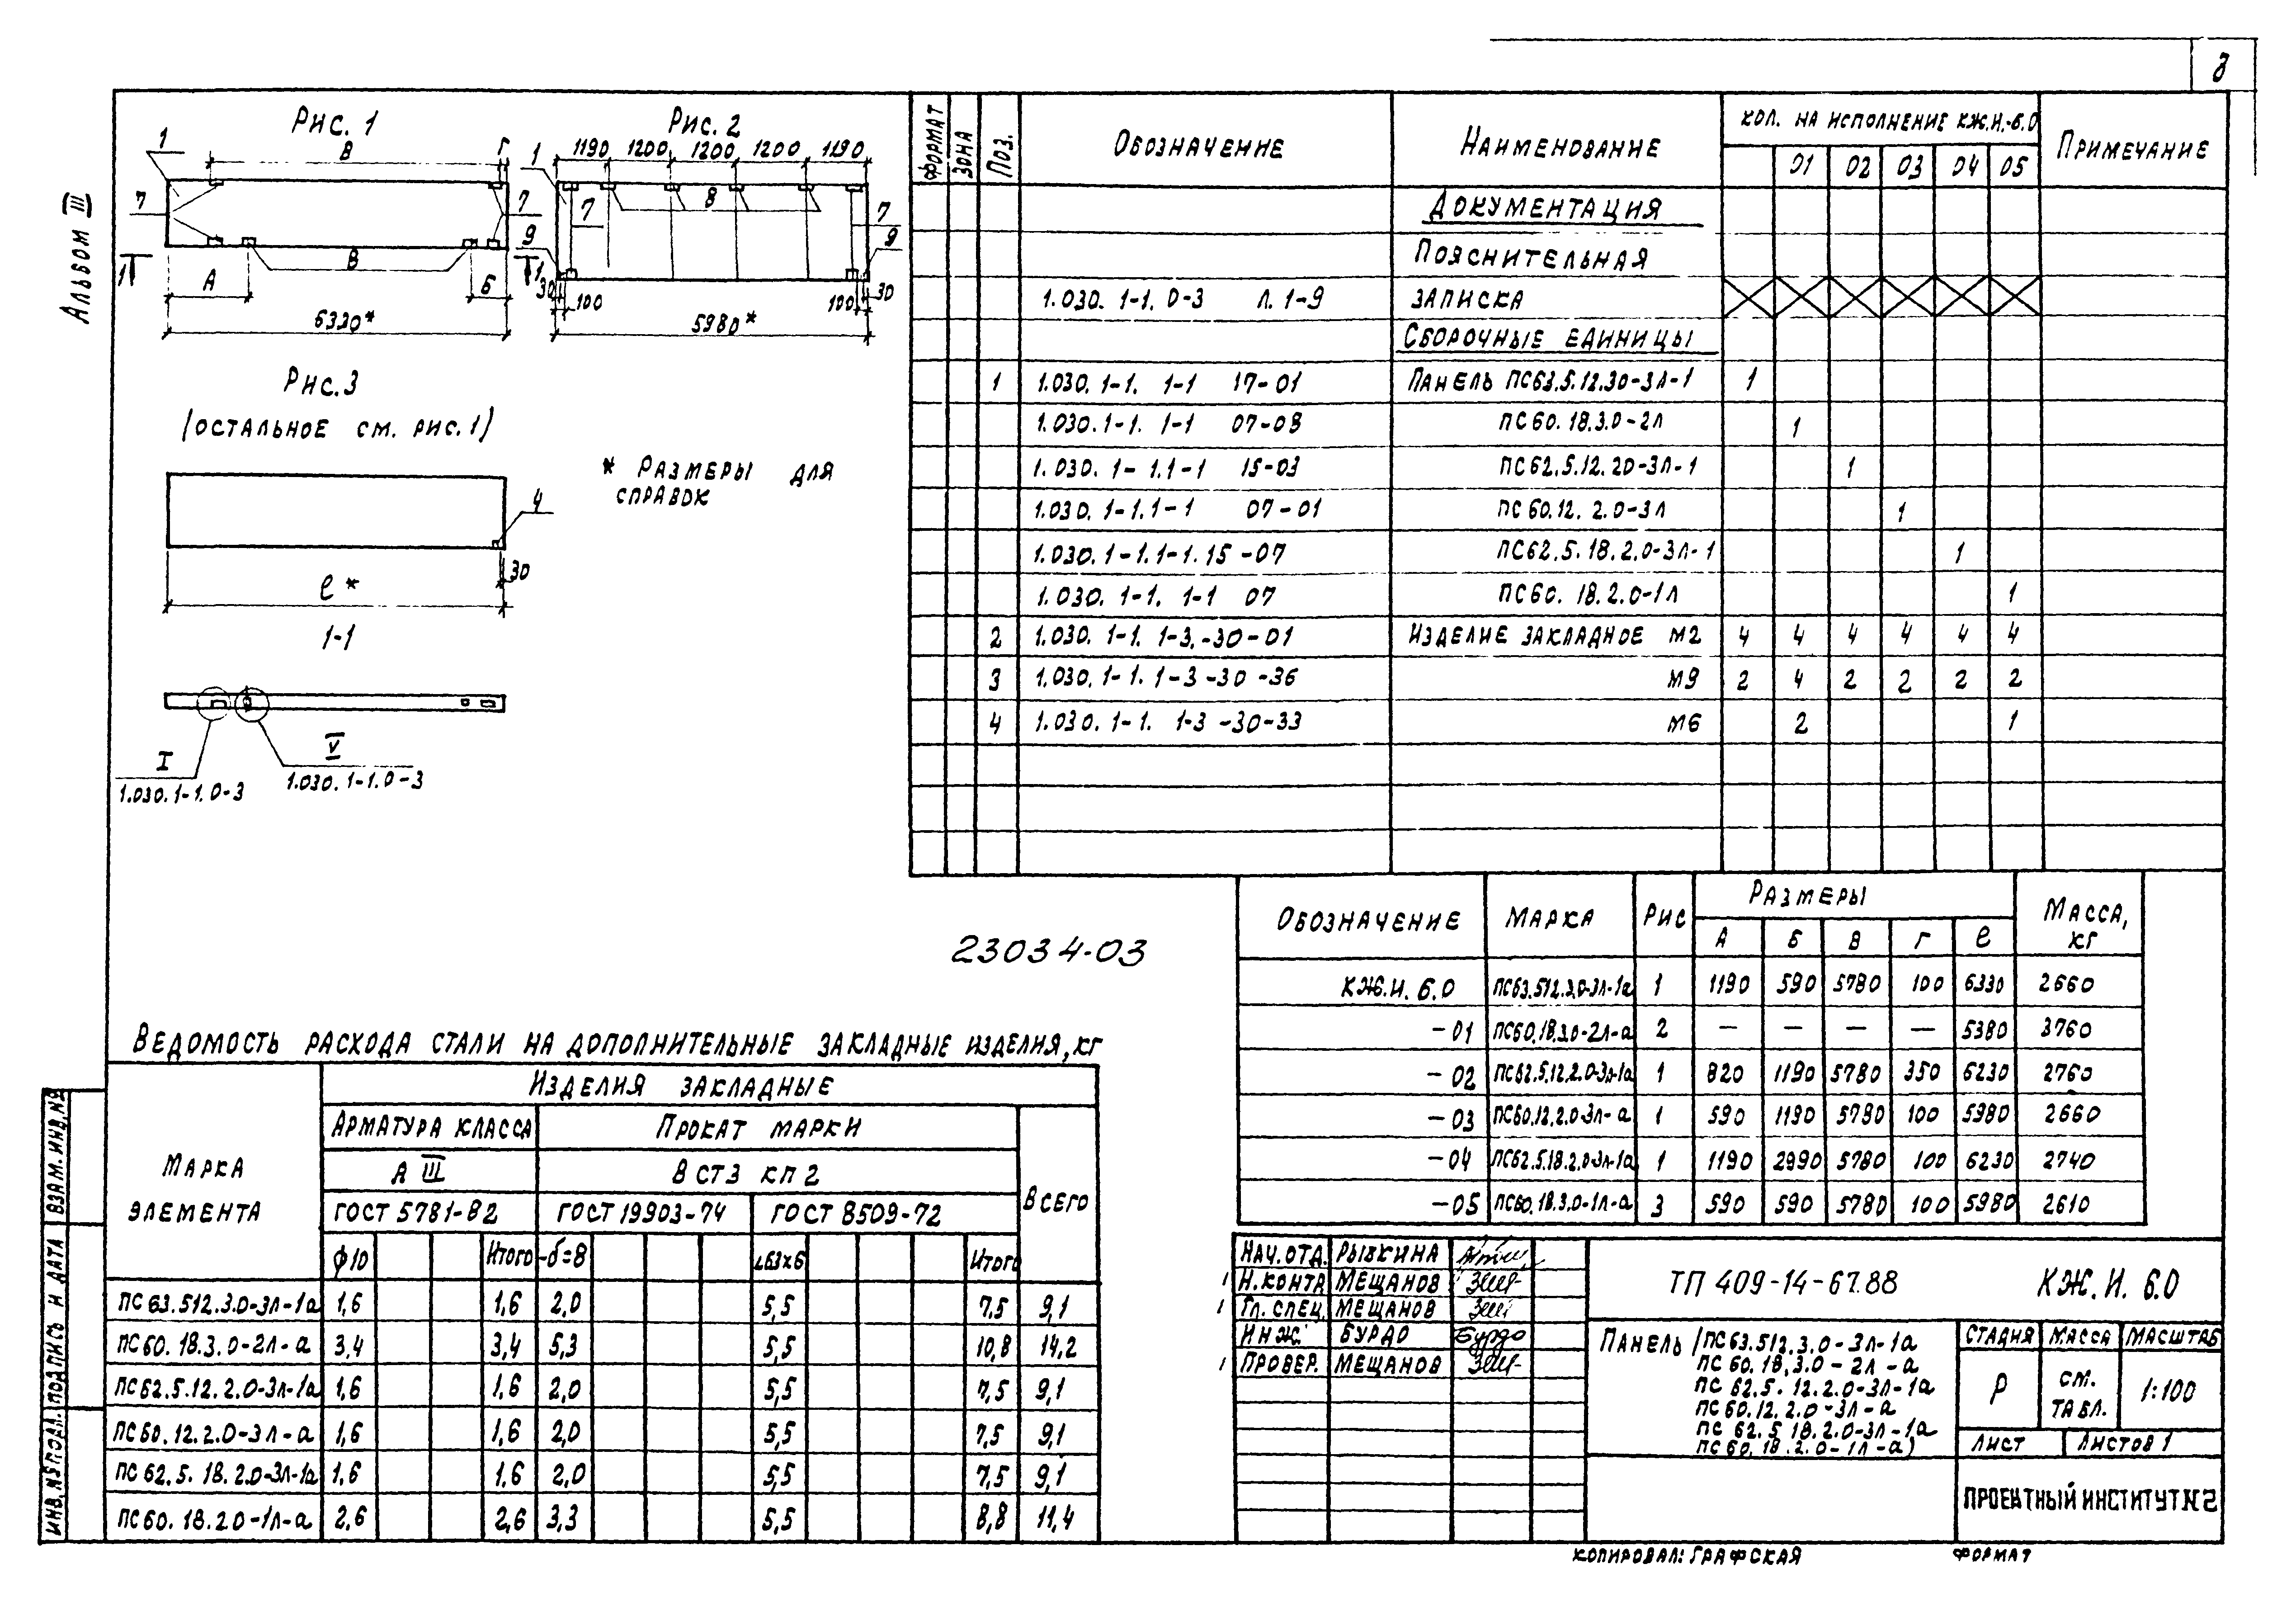 8
Альбом III
Рис. 1
1
В
Г
7
7
В
А
Б
1
1
6330*
Рис. 2
1190 1200 1200 1200 1190
1
7
8
7
9
9
30
100
100
30
5980*
Рис. 3
(остальное см. рис. 1)
* Размеры для
справок
4
30
ℓ*
1-1
I
1.030.1-1.0-3
V
1.030.1-1.0-3
Формат Зона Поз. Обозначение Наименование Кол. на исполнение КЖ.И.-6.0 Примечание
01 02 03 04 05
Документация
Пояснительная
1.030.1-1.0-3 л. 1-9 записка
Сборочные единицы
1 1.030.1-1. 1-1 17-01 Панель ПС63.5.12.30-3л-1 1
1.030.1-1. 1-1 07-08 ПС60.18.3.0-2л 1
1.030.1-1.1-1 15-03 ПС62.5.12.20-3л-1 1
1.030.1-1.1-1 07-01 ПС60.12.2.0-3л 1
1.030.1-1.1-1.15-07 ПС62.5.18.2.0-3л-1 1
1.030.1-1. 1-1 07 ПС60.18.2.0-1л 1
2 1.030.1-1. 1-3.-30-01 Изделие закладное М2 4 4 4 4 4 4
3 1.030.1-1.1-3-30-36 М9 2 4 2 2 2 2
4 1.030.1-1. 1-3-30-33 М6 2 1
23034-03
Обозначение Марка Рис Размеры Масса, кг
А Б В Г ℓ
КЖ.И.6.0 ПС63.512.3.0-3л-1а 1 1190 590 5780 100 6330 2660
-01 ПС60.18.3.0-2л-а 2 — — — — 5380 3760
-02 ПС62.5.12.2.0-3л-1а 1 820 1190 5780 350 6230 2760
-03 ПС60.12.2.0-3л-а 1 590 1190 5780 100 5980 2660
-04 ПС62.5.18.2.0-3л-1а 1 1190 2990 5780 100 6230 2740
-05 ПС60.18.3.0-1л-а 3 590 590 5780 100 5980 2610
Ведомость расхода стали на дополнительные закладные изделия, кг
Марка элемента Изделия закладные
Арматура класса Прокат марки Всего
А III ВСТ3 КП2
ГОСТ 5781-82 ГОСТ 19903-74 ГОСТ 8509-72
ф10 Итого -δ=8 ∟63х6 Итого
ПС63.512.3.0-3л-1а 1,6 1,6 2,0 5,5 7,5 9,1
ПС60.18.3.0-2л-а 3,4 3,4 5,3 5,5 10,8 14,2
ПС62.5.12.2.0-3л-1а 1,6 1,6 2,0 5,5 7,5 9,1
ПС60.12.2.0-3л-а 1,6 1,6 2,0 5,5 7,5 9,1
ПС62.5.18.2.0-3л-1а 1,6 1,6 2,0 5,5 7,5 9,1
ПС60.18.20-1л-а 2,6 2,6 3,3 5,5 8,8 11,4
Взам.инв.№
Подпись и дата
Инв.№ подл.
Нач.отд. Рывкина
Н.контр Мещанов
Гл.спец. Мещанов
Инж. Бурдо Бурдо
Провер. Мещанов
ТП 409-14-67.88 КЖ.И. 6.0
Панель (ПС63.512.3.0-3л-1а
ПС60.18.3.0-2л-а
ПС62.5.12.2.0-3л-1а
ПС60.12.2.0-3л-а
ПС62.5.18.2.0-3л-1а
ПС60.18.2.0-1л-а)
Стадия Масса Масштаб
Р см. табл. 1:100
Лист Листов 1
Проектный институт №2
Копировал: Графская Формат